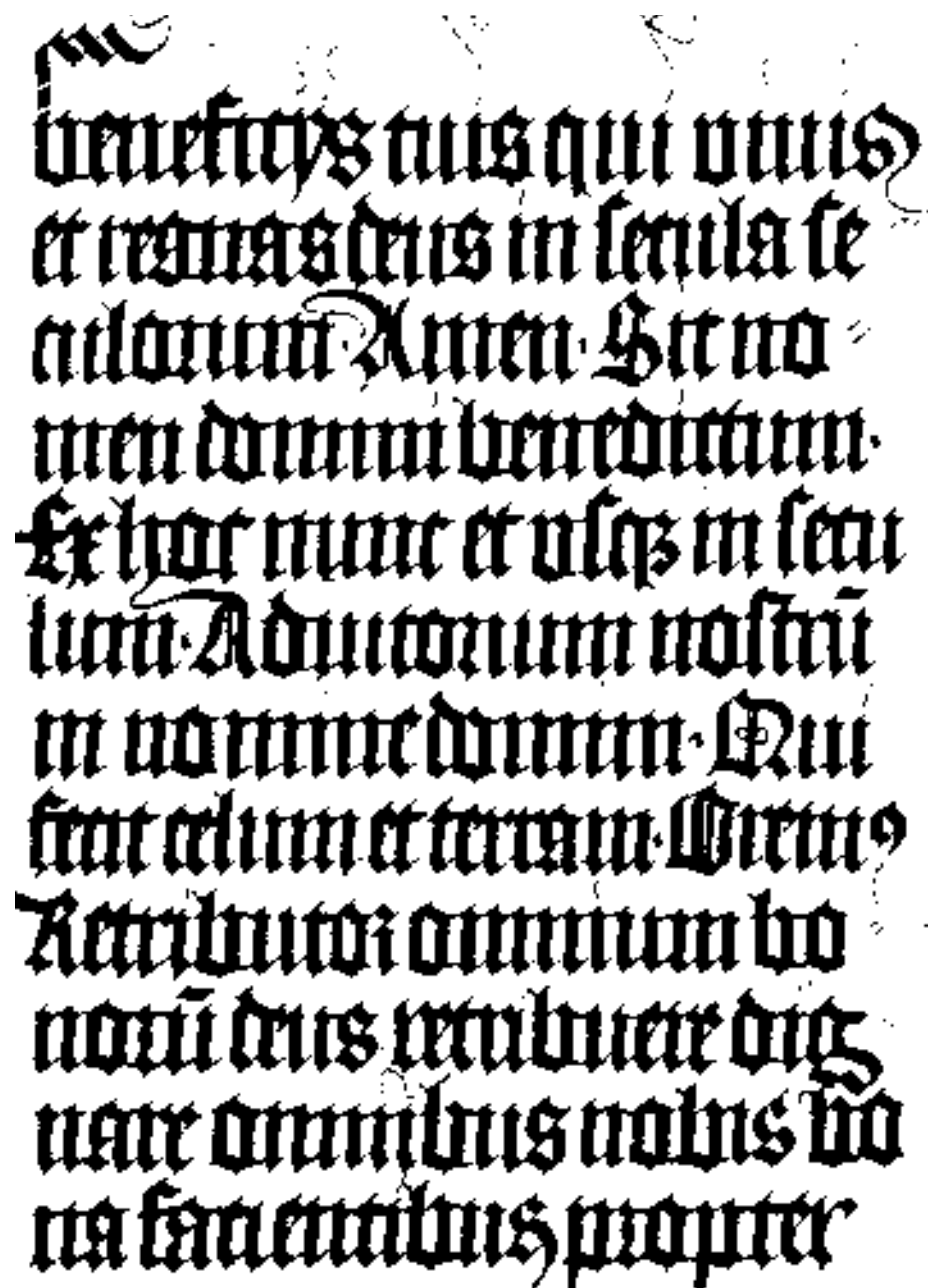 beneficijs tuis qui viuis
et regnas deus in secula se
culorum. Amen. Sit no
men domini benedictum.
Ex hoc nunc et vsqꝫ in secu
lum. Adiutorium nostrū
in nomine domini. Qui
fecit celum et terram. Oremꝰ
Retributor omnium bo
norū deus retribuere dig
nare omnibus nobis bo
na facientibus propter